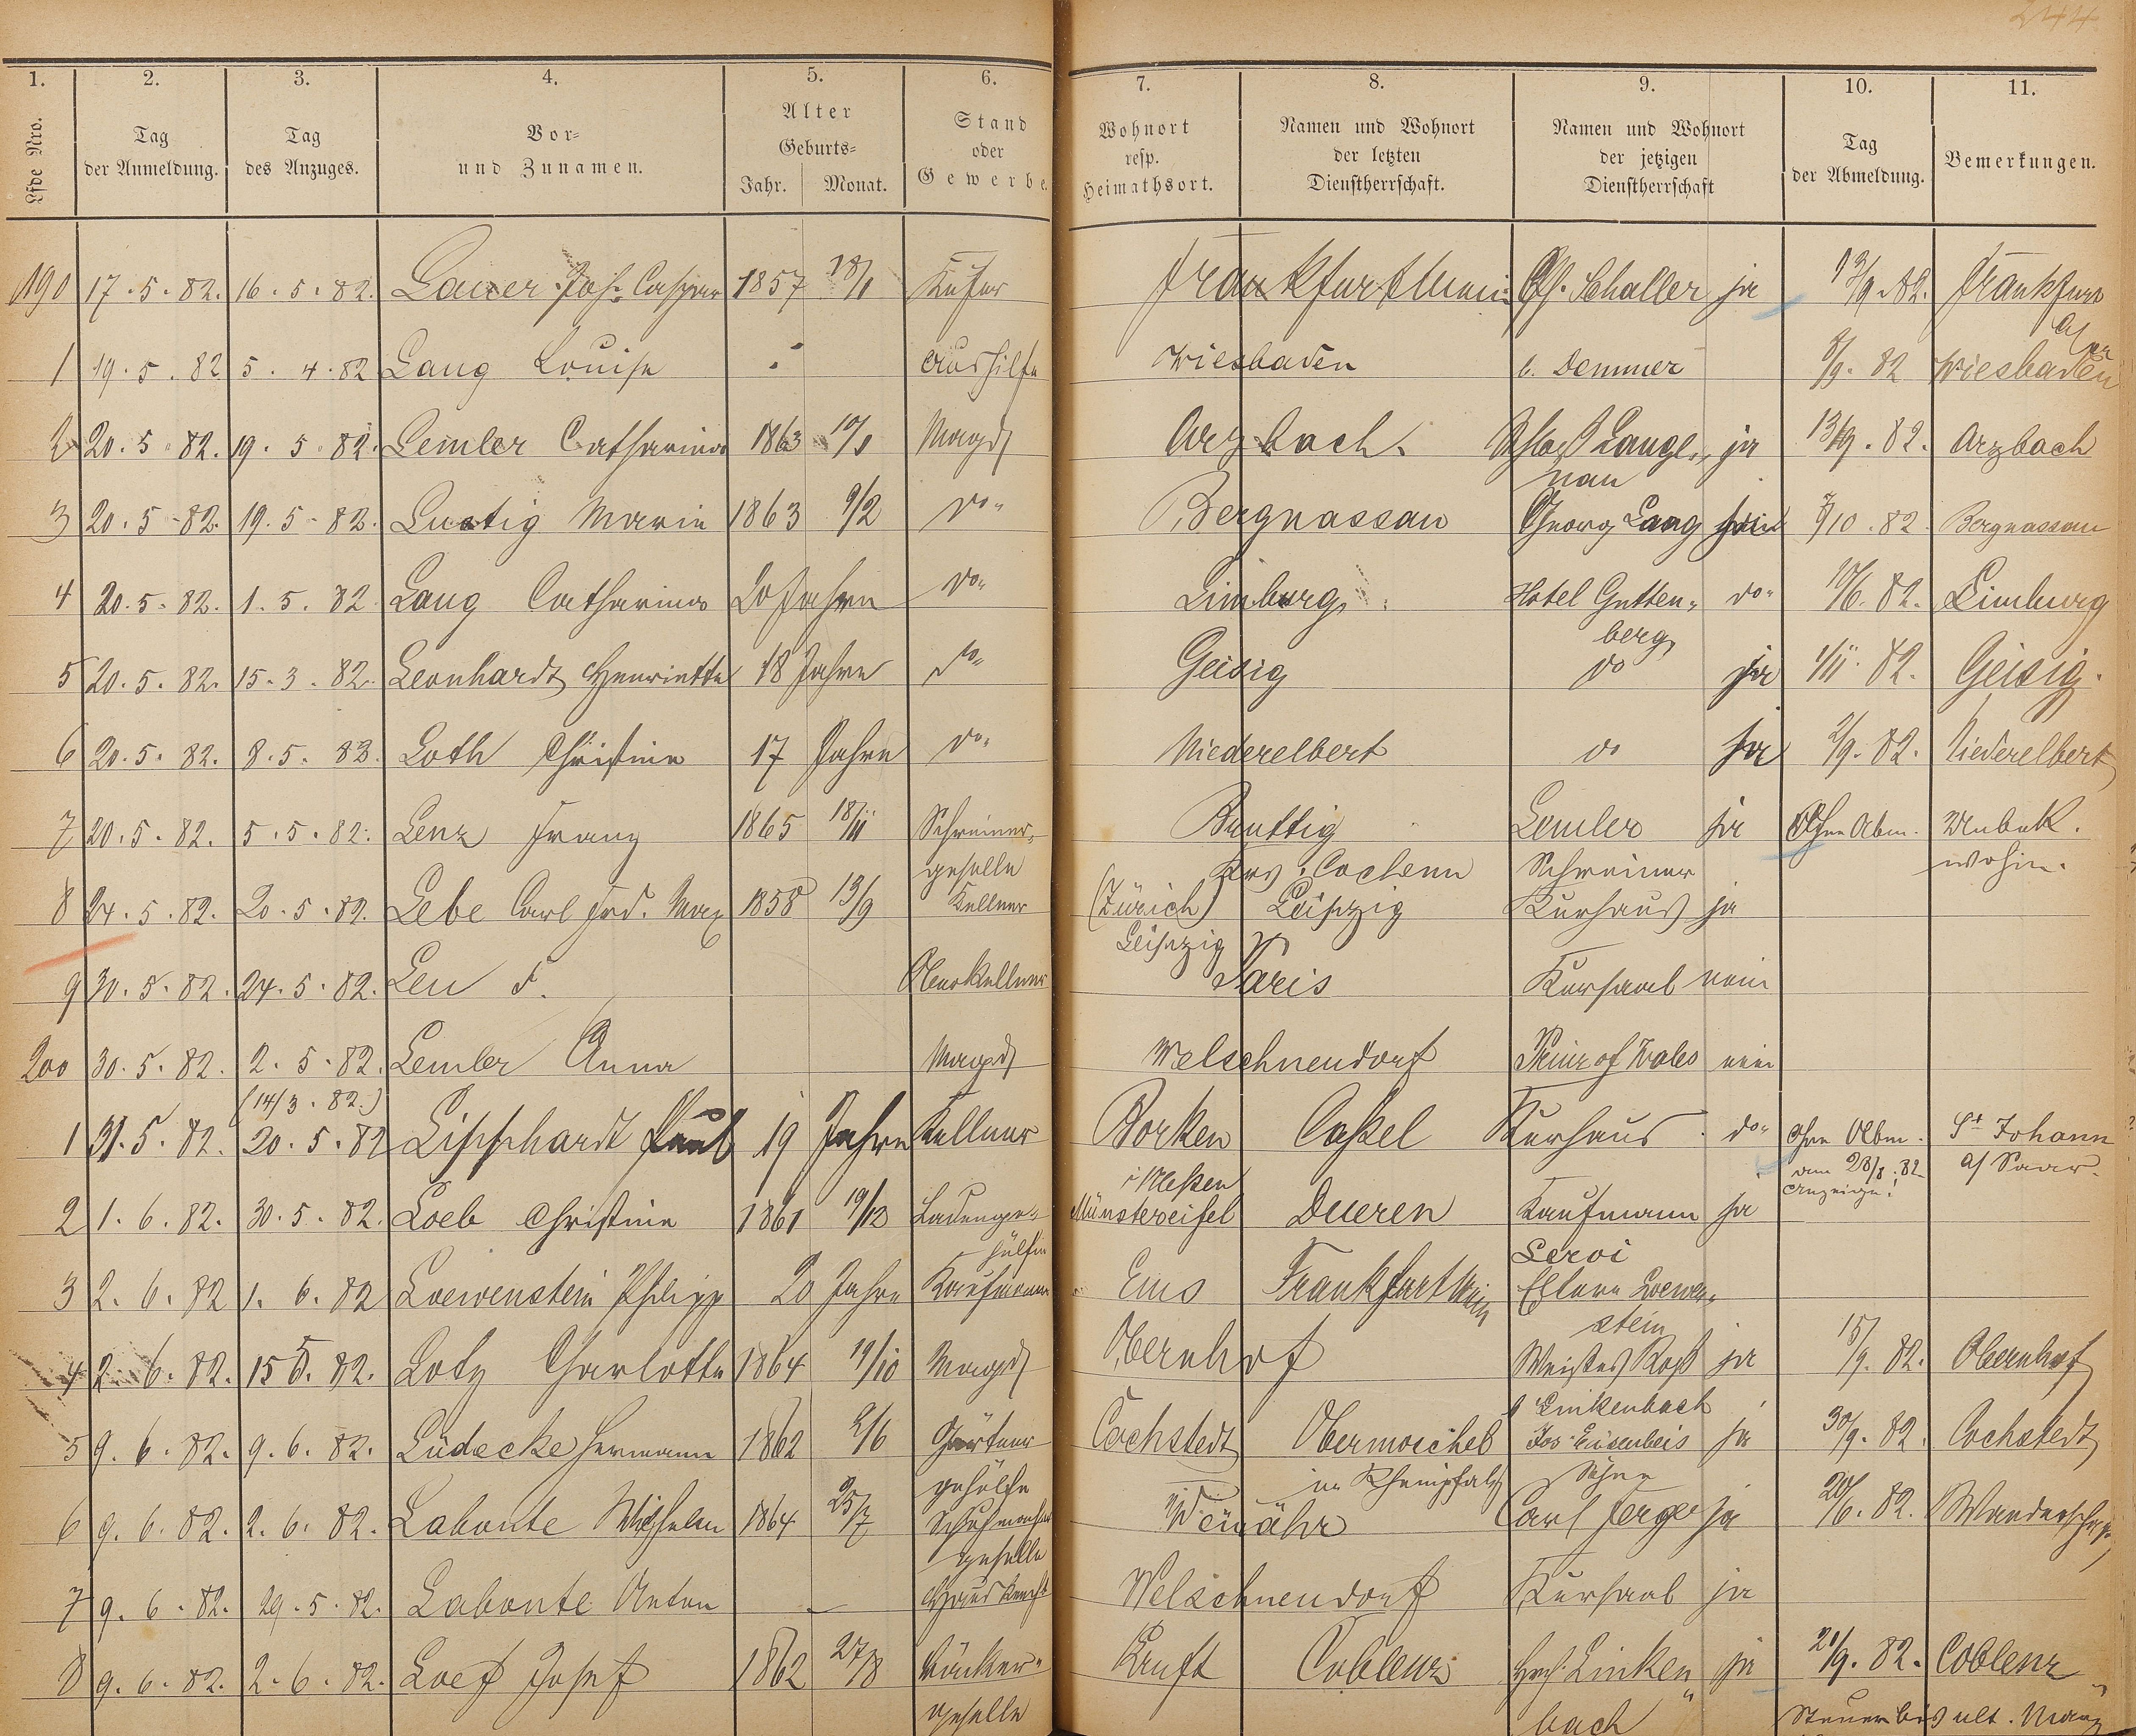 244
1. 2. 3. 4. 5. 6. 7. 8. 9. 10. 11.
Lfde Nro. Tag der Anmeldung. Tag des Anzuges. Vor- und Zunamen. Alter Geburts- Jahr. Monat. Stand oder Gewerbe. Wohnort resp. Heimathsort. Namen und Wohnort der letzten Dienstherrschaft. Namen und Wohnort der jetzigen Dienstherrschaft Tag der Abmeldung. Bemerkungen.
190 17.5.82. 16.5.82. Lauer Joh. Caspar 1857 18/1 Küfer Frankfurt Schaller ja 13/9.82. Frankfurt
1 19.5.82 5.4.82 Lang Louise Aushilfe Wiesbaden b. Demmer 8/9.82 Wiesbaden
2 20.5.82. 19.5.82. Lemler Catharina 1863 10/1 Magd Arzbach Schloß Langl„ ja 13/9.82. Arzbach
nau
3 20.5.82. 19.5.82. Lustig Marie 1863 9/2 do„ Bergnassau Georg Lang 7/10.82 Bergnassau
4 20.5.82. 1.5.82 Lang Catharina 20 Jahren do„ Limburg Hotel Gutten„ do„ 10/6.82. Limburg
berg
5 20.5.82. 15.3.82. Leonhardt Henriette 18 Jahre do„ Geisig do ja 1/11.82. Geisig.
6 20.5.82. 8.5.82. Loth Christine 17 Jahre do„ Niederelbert do ja 2/9.82. Niederelbert
7 20.5.82. 5.5.82. Lenz Franz 1865 18/11 Schreiner- Bruttig Lemler ja Ohne Abm. Unbek.
geselle Krs. Cochem Schreiner wohin.
8 24.5.82. 20.5.82. Lebe Carl Frd. Max 1858 13/9 Kellner (Zürich) Leipzig Kurhaus ja
Leipzig
9 30.5.82. 24.5.82. Leu F. Oberkellner Paris Kursaal nein
200 30.5.82. 2.5.82. Lemler Anna Magd Welschneudorf Prinz of Wales nein
(14/3.82.)
1 31.5.82. 20.5.82 Lipphardt Paul 19 Jahre Kellner Borken Caßel Kurhaus do„ ohne Abm. St Johann
i/Heßen vom 28/8.82 a/ Saar.
Anzeige!
2 1.6.82. 30.5.82. Loeb Christine 1861 19/12 Ladenge- Münstereifel Dueren Kaufmann ja
hülfin Leroi
3 2.6.82 1.6.82 Loewenstein Philipp 20 Jahre Kaufmann Ems Frankfurt Main Eltern Loewen„
stein
4 2.6.82. 15.5.82. Lotz Charlotte 1864 19/10 Magd Obernhof Weißes Roß ja 15/9.82. Obernhof
Linkenbach
5 9.6.82. 9.6.82. Lüdecke Hermann 1862 2/6 Gärtner Cochstedt Obermoschel Jos. Eisenbeis ja 30/9.82. Cochstedt
gehülfe in Rheinpfalz Söhne
6 9.6.82. 2.6.82. Labonte Wilhelm 1864 25/7 Schuhmacher Weinähr Carl Ferger ja 20/6.82. Wanderschaft
geselle
7 9.6.82. 29.5.82. Labonte Anton — Hausknecht Welschneudorf Kursaal ja
8 9.6.82. 2.6.82. Loef Josef 1862 27/8 Bäcker„ Kruft Coblenz Hch. Linken„ ja 21/9.82. Coblenz
geselle bach Steuer bis ult. März